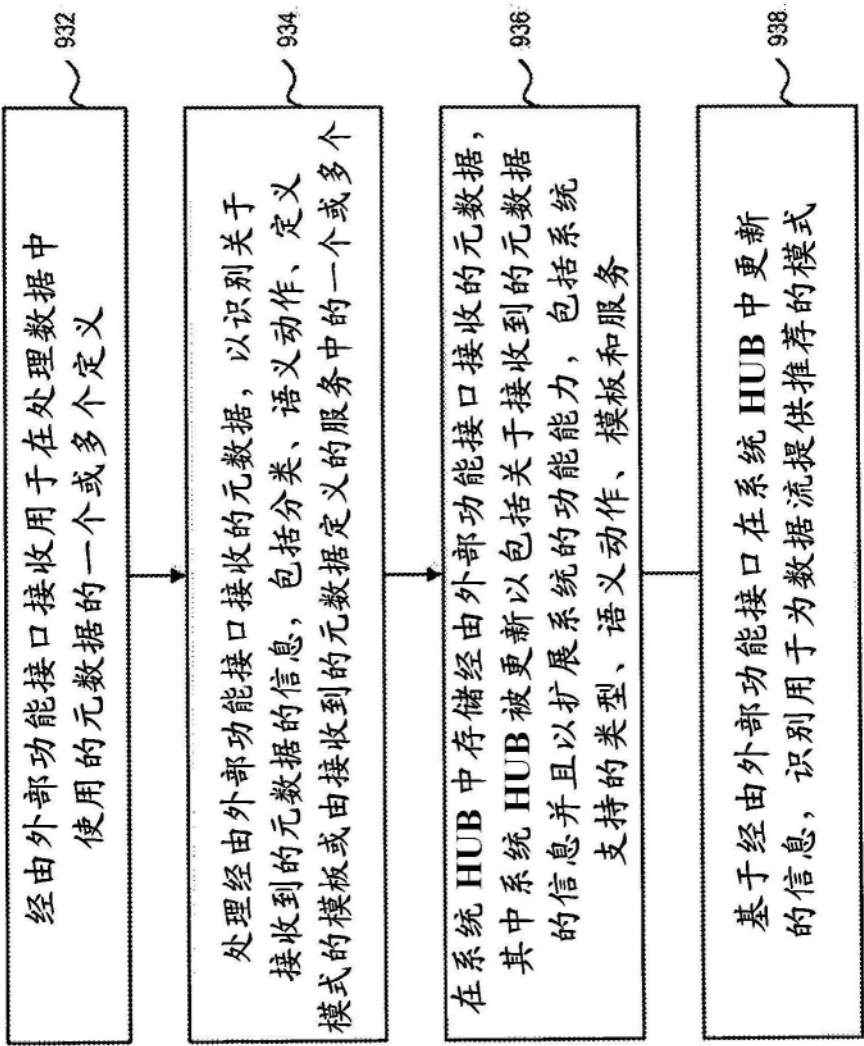 经由外部功能接口接收用于在处理数据中
使用的元数据的一个或多个定义
932
处理经由外部功能接口接收的元数据，以识别关于
接收到的元数据的信息，包括分类、语义动作、定义
模式的模板或由接收到的元数据定义的服务中的一个或多个
934
在系统 HUB 中存储经由外部功能接口接收的元数据，
其中系统 HUB 被更新以包括关于接收到的元数据
的信息并且以扩展系统的功能能力，包括系统
支持的类型、语义动作、模板和服务
936
基于经由外部功能接口在系统 HUB 中更新
的信息，识别用于为数据流提供推荐的模式
938